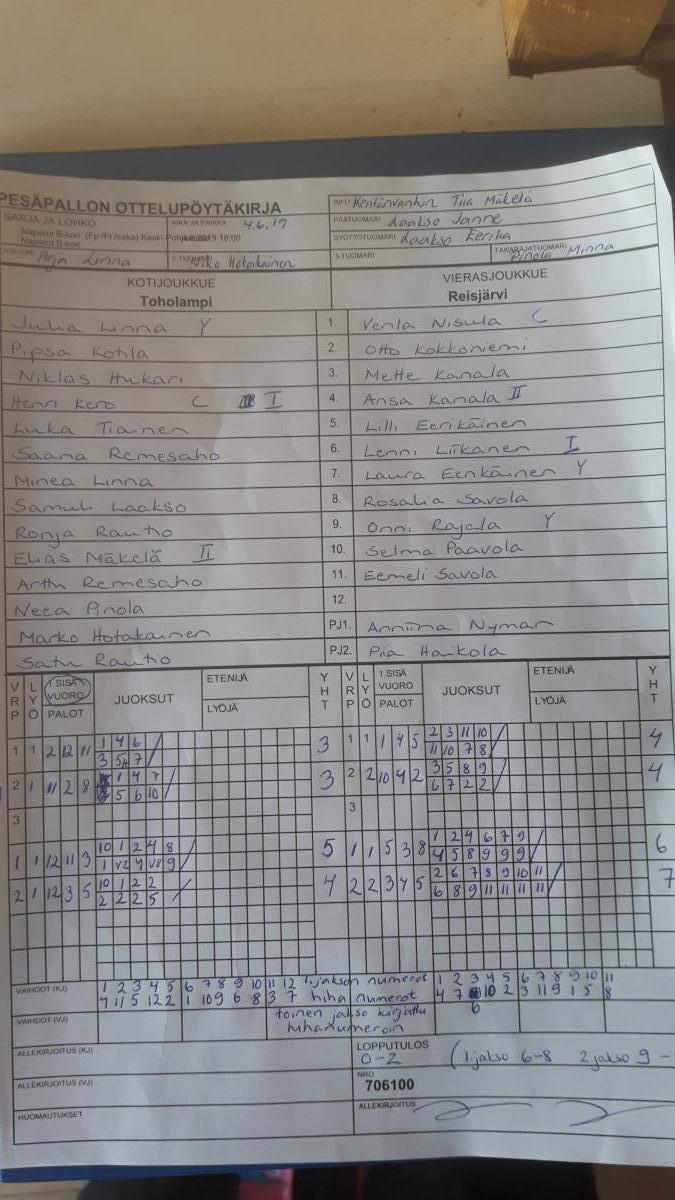 PESÄPALLON OTTELUPÖYTÄKIRJA
INFO Kentänvanhin Tiia Mäkelä
SARJA JA LOHKO
AIKA JA PAIKKA 4.6.19
PÄÄTUOMARI Laakso Janne
Naperot B-kori (Fp/Ft /seka) Keski-
18:00
Naperot B-kori
SYÖTTÖTUOMARI Laakso Eerika
KIRJURI Arja Linna
2-TUOMARI Niko Hotakainen
3-TUOMARI
TAKARAJATUOMARI Pinola Minna
KOTIJOUKKUE
Toholampi
VIERASJOUKKUE
Reisjärvi
Julia Linna Y
1. Venla Nisula C
Pipsa Kotila
2. Otto Kokkoniemi
Niklas Hukari
3. Mette Kanala
Henri Kero C I
4. Ansa Kanala II
Luka Tiainen
5. Lilli Eerikäinen
Saana Remesaho
6. Lenni Liikanen I
Minea Linna
7. Laura Eerikäinen Y
Samuli Laakso
8. Rosalia Savola
Ronja Rautio
9. Onni Rajala Y
Elias Mäkelä II
10. Selma Paavola
Artti Remesaho
11. Eemeli Savola
Neea Pinola
12.
Marko Hotakainen
PJ1. Anniina Nyman
Satu Rautio
PJ2. Piia Haikola
VRP LYÖ 1.SISÄ VUORO PALOT JUOKSUT ETENIJÄ LYÖJÄ YHT VRP LYÖ 1.SISÄ VUORO PALOT JUOKSUT ETENIJÄ LYÖJÄ YHT
1 1 2 12 11 1 4 6 3 1 1 1 4 5 2 3 11 10 4
3 5 7 11 10 7 8
2 1 11 2 8 1 4 7 3 2 2 10 4 2 3 5 8 9 4
5 6 10 6 7 2 2
3 3
1 1 12 11 3 10 1 2 4 8 5 1 1 5 3 8 1 2 4 6 7 9 6
1 V2 4 V8 9 4 5 8 9 9 9
2 1 12 3 5 10 1 2 2 4 2 2 3 4 5 2 6 7 8 9 10 11 7
2 2 2 5 6 8 9 11 11 11 11
VAIHDOT (KJ) 1 2 3 4 5 6 7 8 9 10 11 12 1.jakson numerot 1 2 3 4 5 6 7 8 9 10 11
4 11 5 12 2 1 10 9 6 8 3 7 hiha numerot 4 7 10 2 3 11 9 1 5 8
VAIHDOT (VJ) toinen jakso kirjattu 6
hihanumeroin
ALLEKIRJOITUS (KJ)
LOPPUTULOS
0-2 (1.jakso 6-8 2 jakso 9 -
ALLEKIRJOITUS (VJ)
NRO
706100
HUOMAUTUKSET
ALLEKIRJOITUS